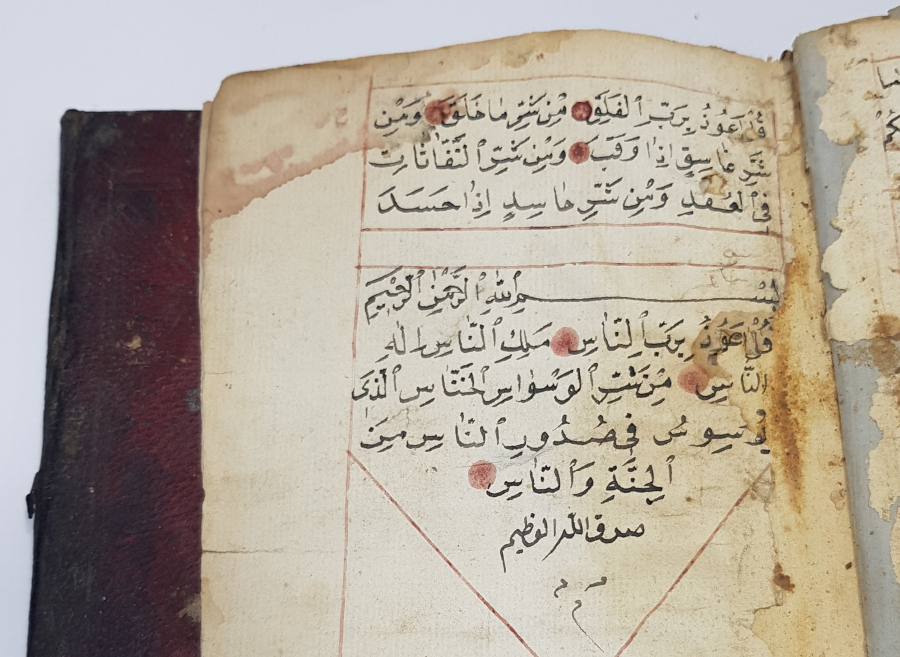 قُلْ اَعُوذُ بِرَبِّ ٱلْفَلَقِ مِنْ شَرِّ مَا خَلَقَ وَمِنْ
شَرِّ غَاسِقٍ اِذَا وَقَبَ وَمِنْ شَرِّ ٱلنَّفَّاثَاتِ
فِى ٱلْعُقَدِ وَمِنْ شَرِّ حَاسِدٍ اِذَا حَسَدَ
بِسْمِ ٱللّٰهِ ٱلرَّحْمٰنِ ٱلرَّحِيمِ
قُلْ اَعُوذُ بِرَبِّ ٱلنَّاسِ مَلِكِ ٱلنَّاسِ اِلٰهِ
ٱلنَّاسِ مِنْ شَرِّ ٱلْوَسْوَاسِ ٱلْخَنَّاسِ ٱلَّذِى
يُوَسْوِسُ فِى صُدُورِ ٱلنَّاسِ مِنَ
ٱلْجِنَّةِ وَٱلنَّاسِ
صدق الله العظيم